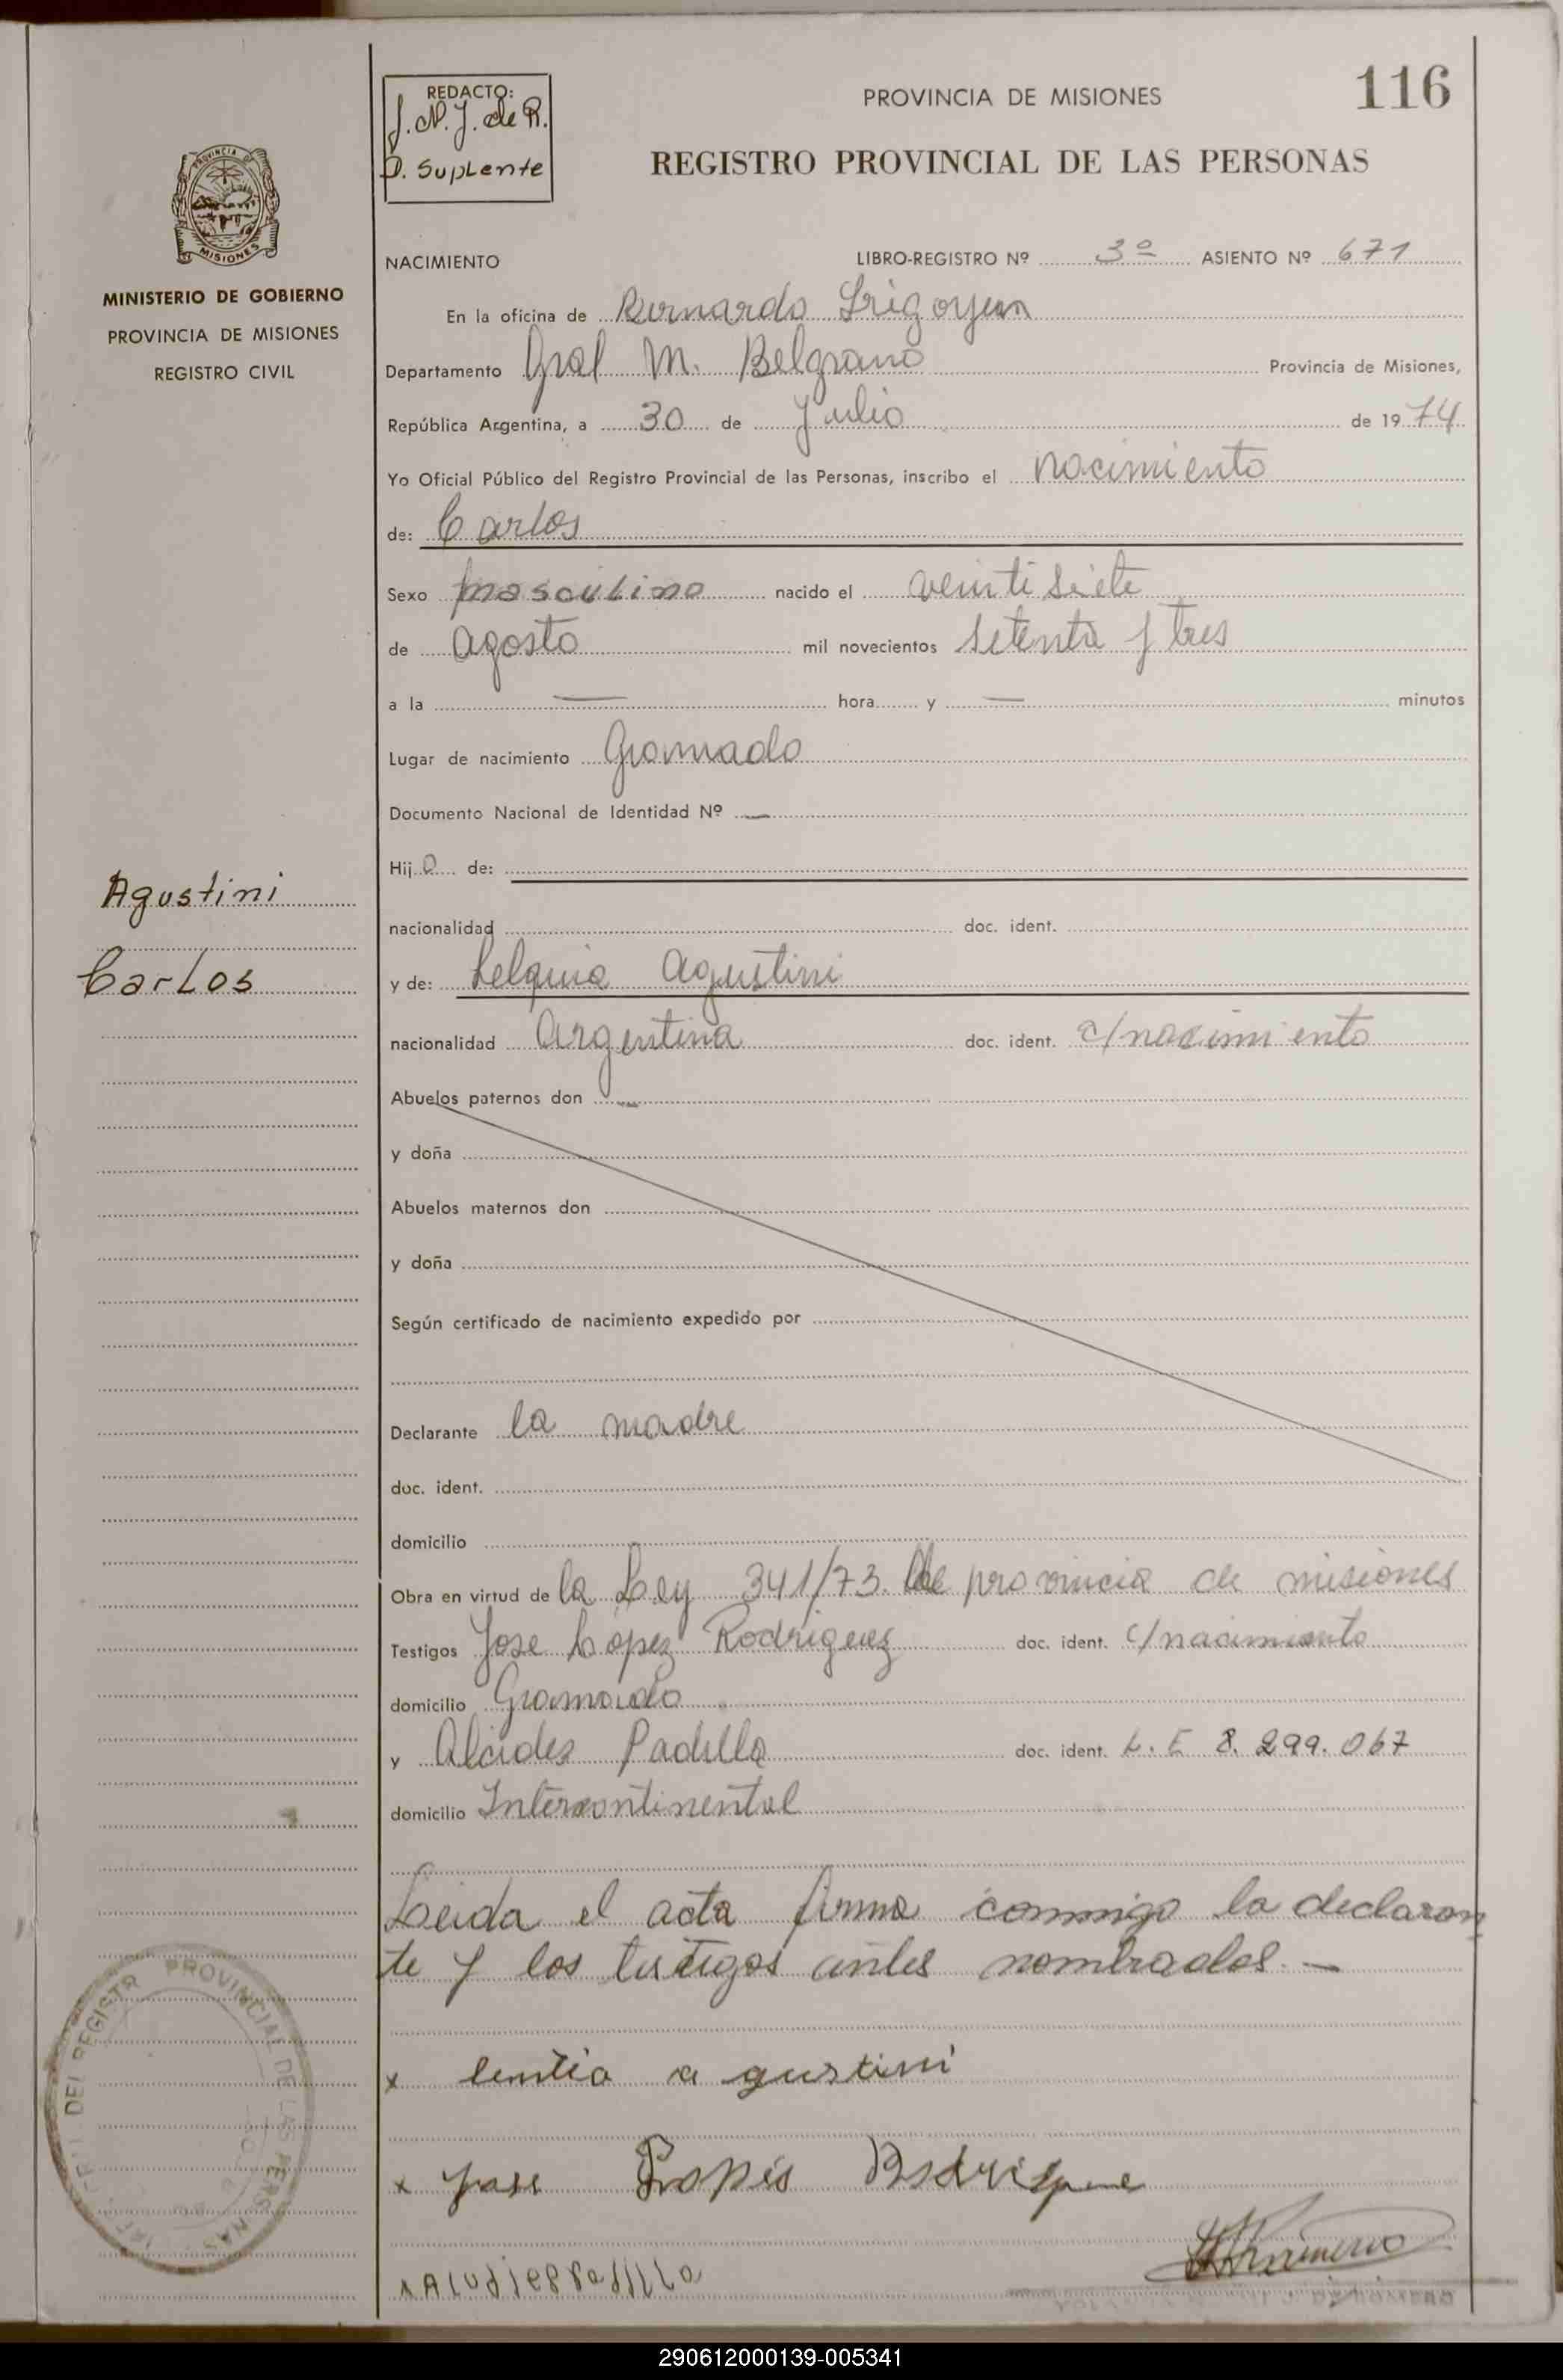 REDACTO:
J. N. J. de R.
D. Suplente
PROVINCIA DE MISIONES
116
REGISTRO PROVINCIAL DE LAS PERSONAS
MISIONES
MINISTERIO DE GOBIERNO
PROVINCIA DE MISIONES
REGISTRO CIVIL
Agustini
Carlos
NACIMIENTO LIBRO-REGISTRO Nº 3º ASIENTO Nº 671
En la oficina de Bernardo Irigoyen
Departamento Gral M. Belgrano Provincia de Misiones,
República Argentina, a 30 de Julio de 1974
Yo Oficial Público del Registro Provincial de las Personas, inscribo el nacimiento
de: Carlos
Sexo masculino nacido el veinti siete
de agosto mil novecientos setenta y tres
a la — hora y — minutos
Lugar de nacimiento Gramado
Documento Nacional de Identidad Nº —
Hijo de:
nacionalidad doc. ident.
y de: Agustini
nacionalidad Argentina doc. ident. c/nacimiento
Abuelos paternos don —
y doña
Abuelos maternos don
y doña
Según certificado de nacimiento expedido por
Declarante la madre
doc. ident.
domicilio
Obra en virtud de la Ley 341/73. de provincia de misiones
Testigos Jose Lopez Rodriguez doc. ident. c/nacimiento
domicilio Gramado
y Alcides Padilla doc. ident. L. E 8.299.067
domicilio Intercontinental
Leida el acta firma conmigo la declaran
te y los testigos antes nombrados. —
x a gustini
x Jose
PROVINCIAL DE LAS PERSONAS
290612000139-005341